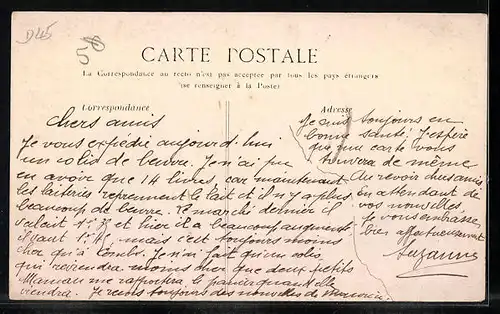 D45
50
CARTE POSTALE
La Correspondance au recto n'est pas acceptée par tous les pays étrangers
(se renseigner à la Poste)
Correspondance
Adresse
Chers amis
Je vous expédie aujourd'hui
un colis de beurre. Je n'ai pu
en avoir que 14 livres, car maintenant
les laiteries reprennent le lait et il n'y a plus
beaucoup de beurre. Le marché dernier il
valait et hier il a beaucoup augmenté
il vaut mais c'est toujours moins
cher qu'à Combr. Je n'ai fait qu'un colis
qui reviendra moins cher que deux petits
Maman me rapportera le panier quand elle
viendra. Je reçois toujours des nouvelles de
Je suis toujours en
bonne santé. J'espère
que ma carte vous
trouvera de même
Au revoir chers amis
en attendant de
vos nouvelles
Je vous embrasse
bien affectueusement
Suzanne